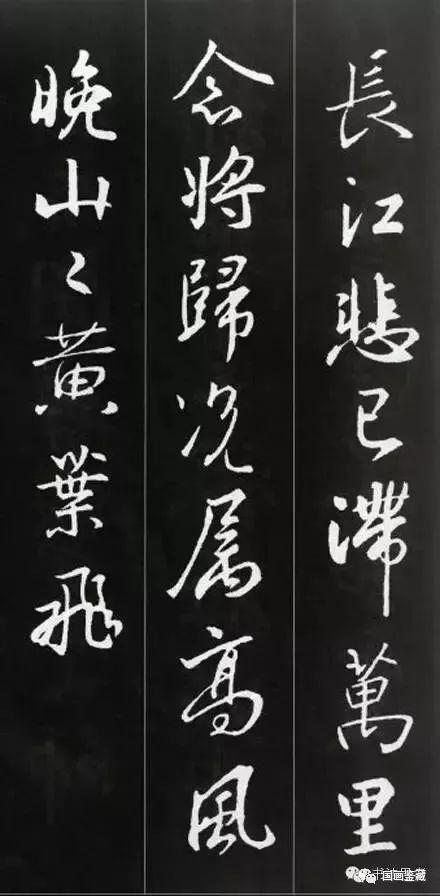 長江悲已滯萬里
念將歸况属高風
晚山〻黄葉飛
国画鉴藏